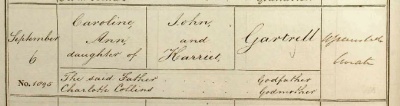 September
6
No. 1095
Caroline
Ann,
daughter of
John,
and
Harriet,
Gartrell
Curate
The said Father
Charlotte Collins
Godfather
Godmother